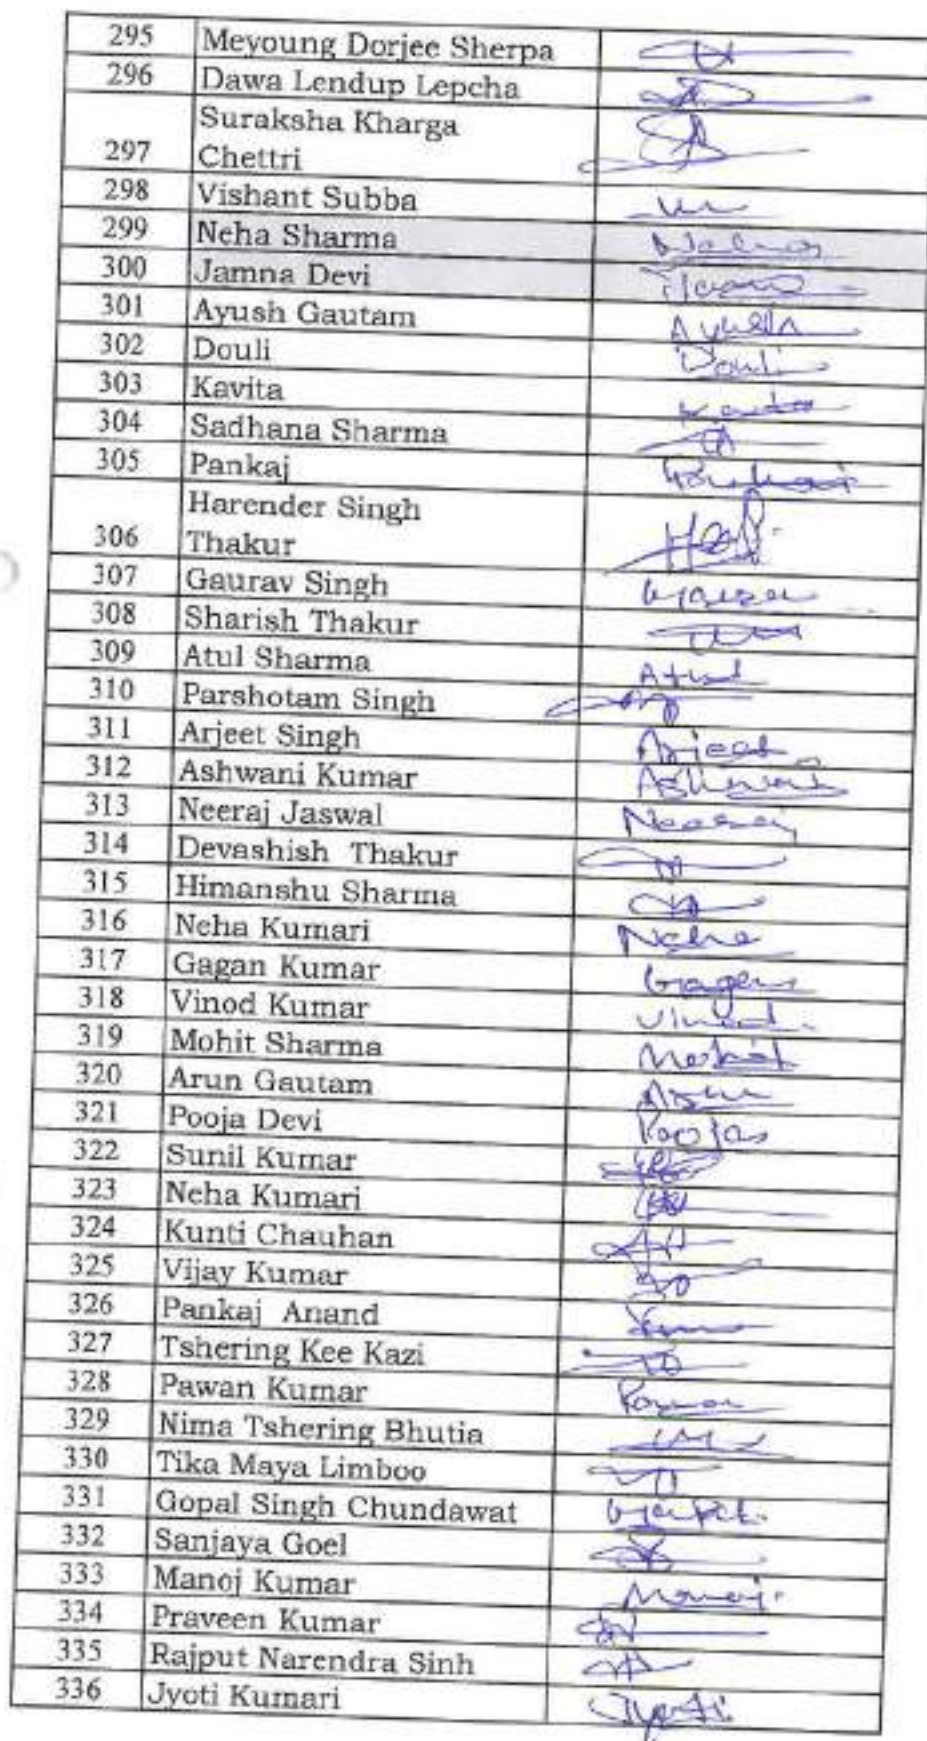 295 Meyoung Dorjee Sherpa
296 Dawa Lendup Lepcha
Suraksha Kharga
297 Chettri
298 Vishant Subba
299 Neha Sharma
300 Jamna Devi
301 Ayush Gautam Ayush
302 Douli Douli
303 Kavita Kavita
304 Sadhana Sharma
305 Pankaj Pankaj
Harender Singh
306 Thakur
307 Gaurav Singh Gaurav
308 Sharish Thakur
309 Atul Sharma Atul
310 Parshotam Singh
311 Arjeet Singh Arjeet
312 Ashwani Kumar Ashwani
313 Neeraj Jaswal Neeraj
314 Devashish Thakur
315 Himanshu Sharma
316 Neha Kumari Neha
317 Gagan Kumar Gagan
318 Vinod Kumar Vinod
319 Mohit Sharma Mohit
320 Arun Gautam Arun
321 Pooja Devi Pooja
322 Sunil Kumar
323 Neha Kumari
324 Kunti Chauhan
325 Vijay Kumar
326 Pankaj Anand
327 Tshering Kee Kazi
328 Pawan Kumar Pawan
329 Nima Tshering Bhutia
330 Tika Maya Limboo
331 Gopal Singh Chundawat
332 Sanjaya Goel
333 Manoj Kumar Manoj
334 Praveen Kumar
335 Rajput Narendra Sinh
336 Jyoti Kumari Jyoti